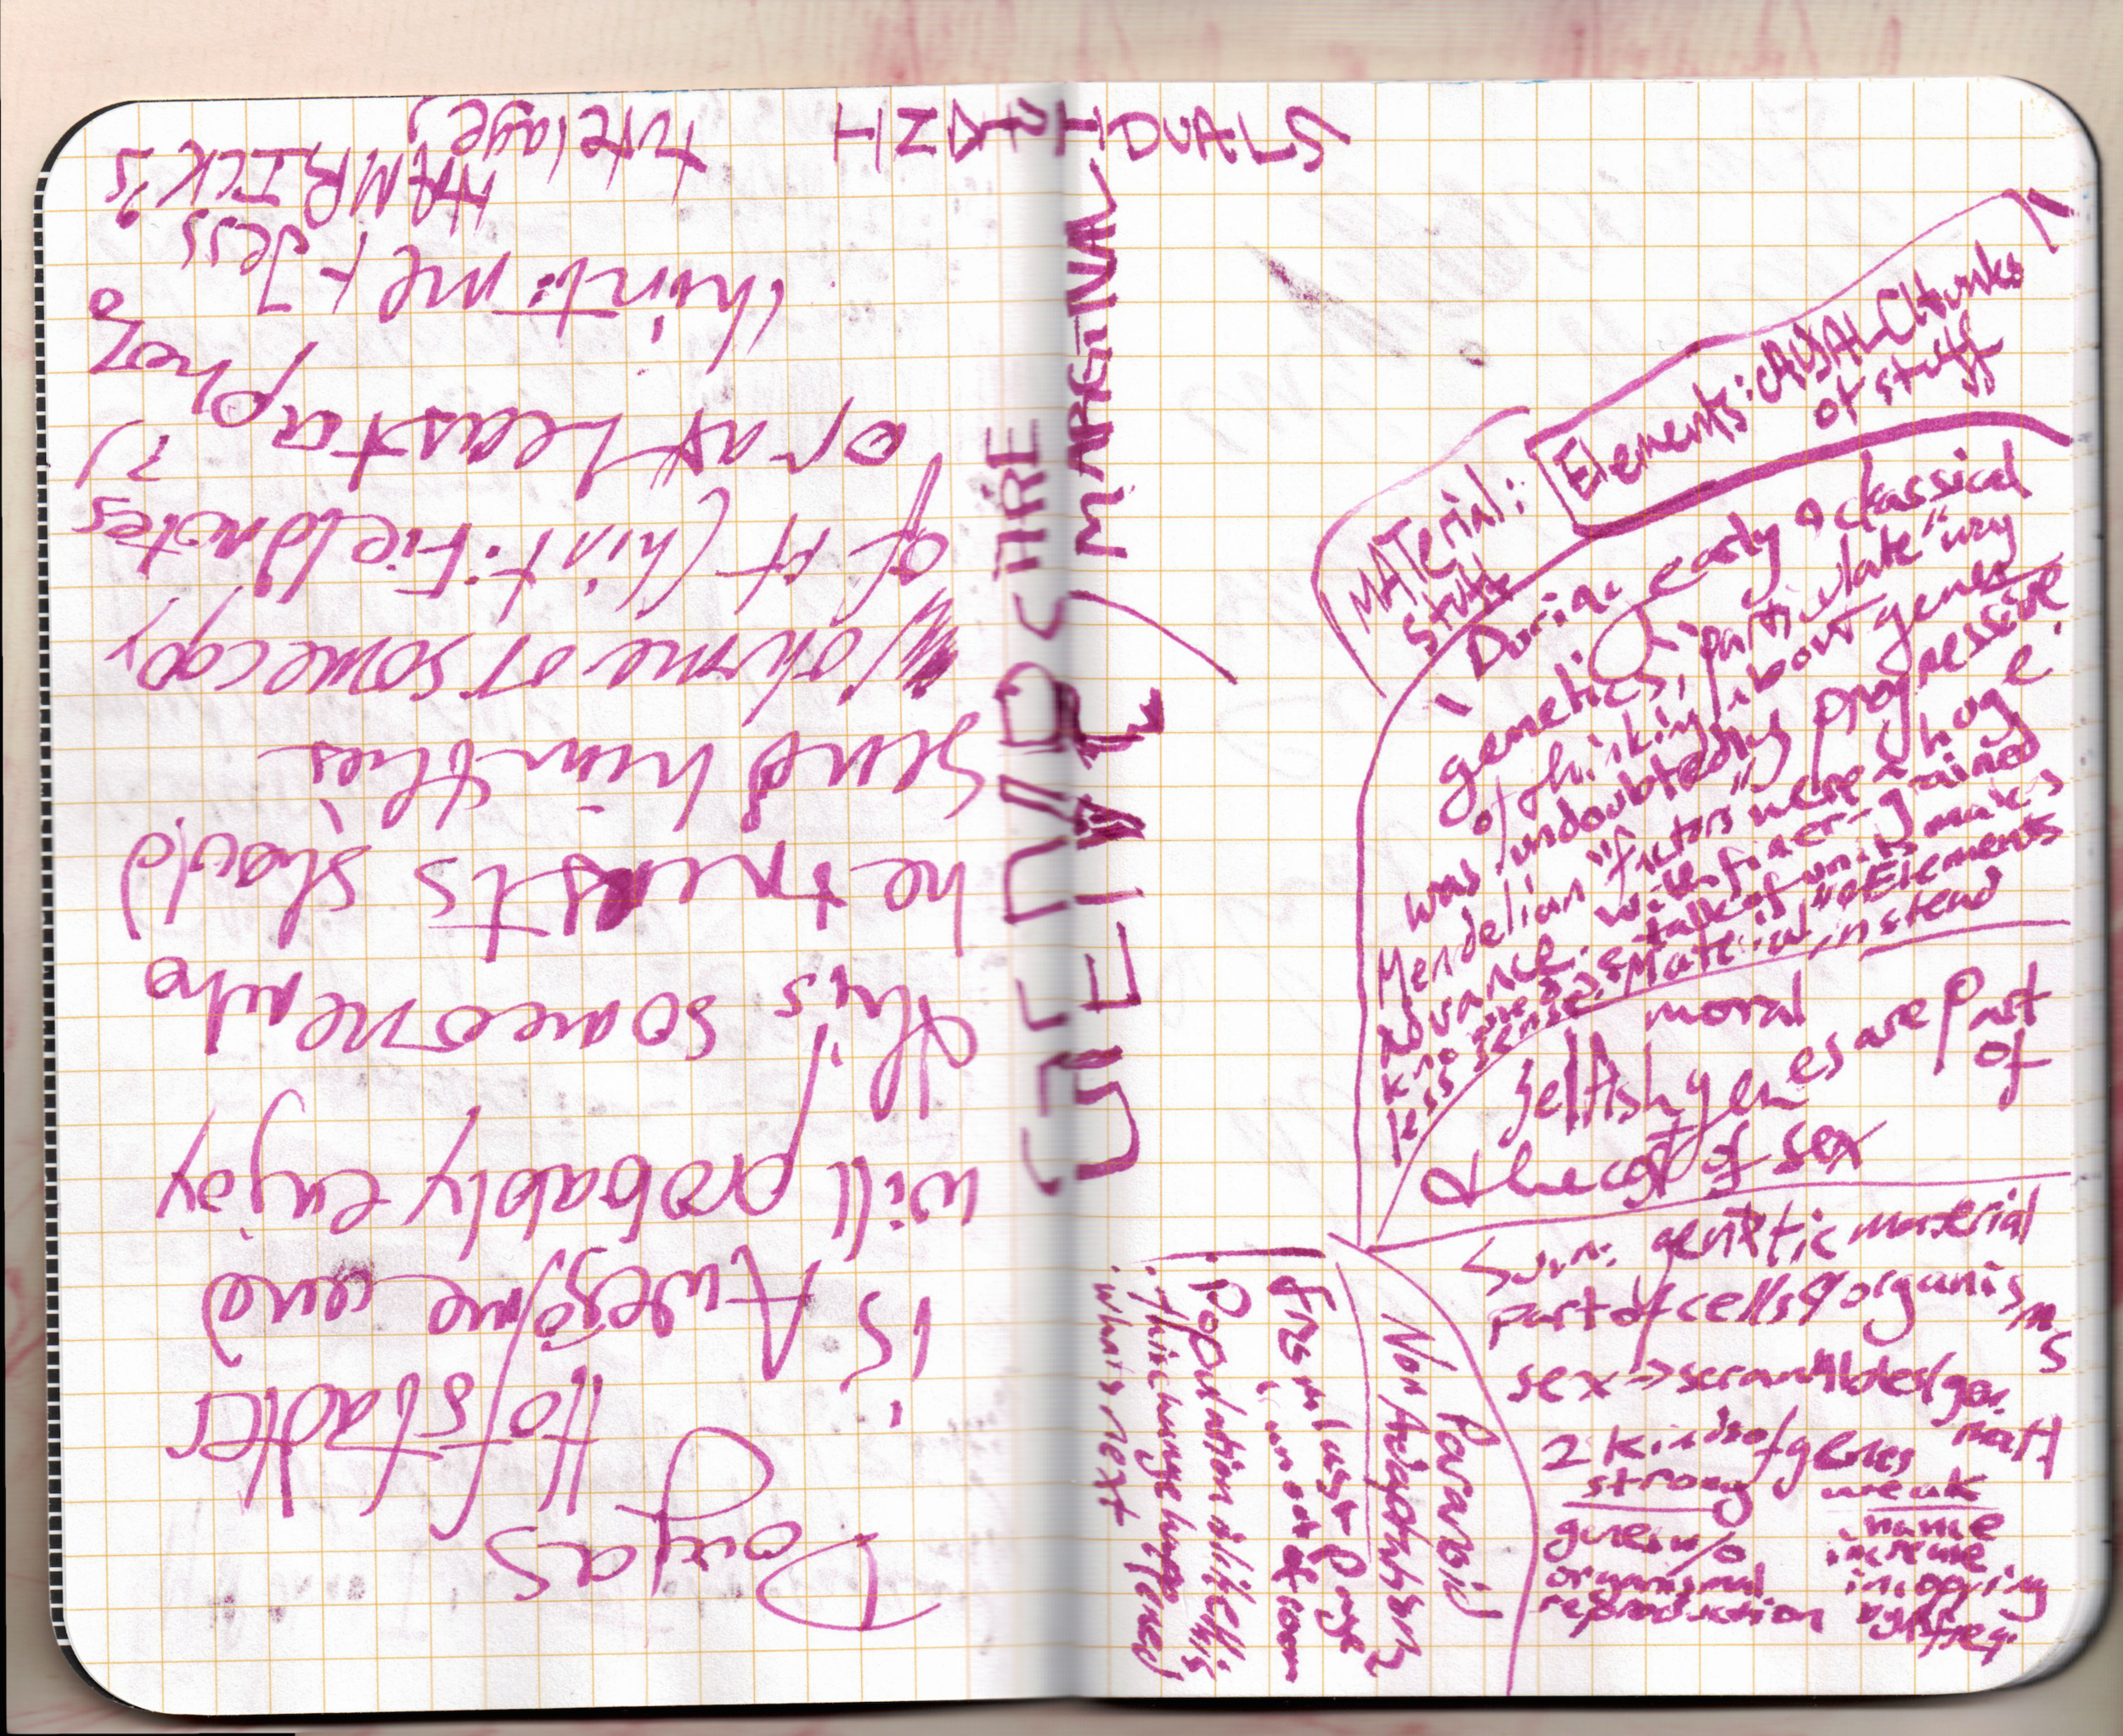 Dougas
Hofstadter
is Awesome and
will probably enjoy
this someone who
he trusts should
Send him this
Volume or some copy
of it (hint: Fieldnotes
or at Least a photo?)
(hint: me + Jess
HAMRICK's
tutelage)
INDIVIDUALS
GENES ARE
GENE
MARGINAL
MATerial:
stuff
Elements: CAUSAL CHunks
of stuff
During early & classical
genetics, "particulate" way
of thinking about genes
was undoubtedly progressive
Mendelian "factors" were a huge
advance. with finer-grained
knowledge, talk of units makes
less sense. "Material" "Elements
instead
moral
Selfish genes are part
of
the cost of sex
Sum: genetic material
part of cells & organisms
sex → scrambles
2 kinds of genes
strong
weak
genes w/o
organismal
reproduction
name
increase
in copying
by freq.
Paranoid
Non Adaptationism
From last page
ran out of room
• Population
• think change happened
• what's next